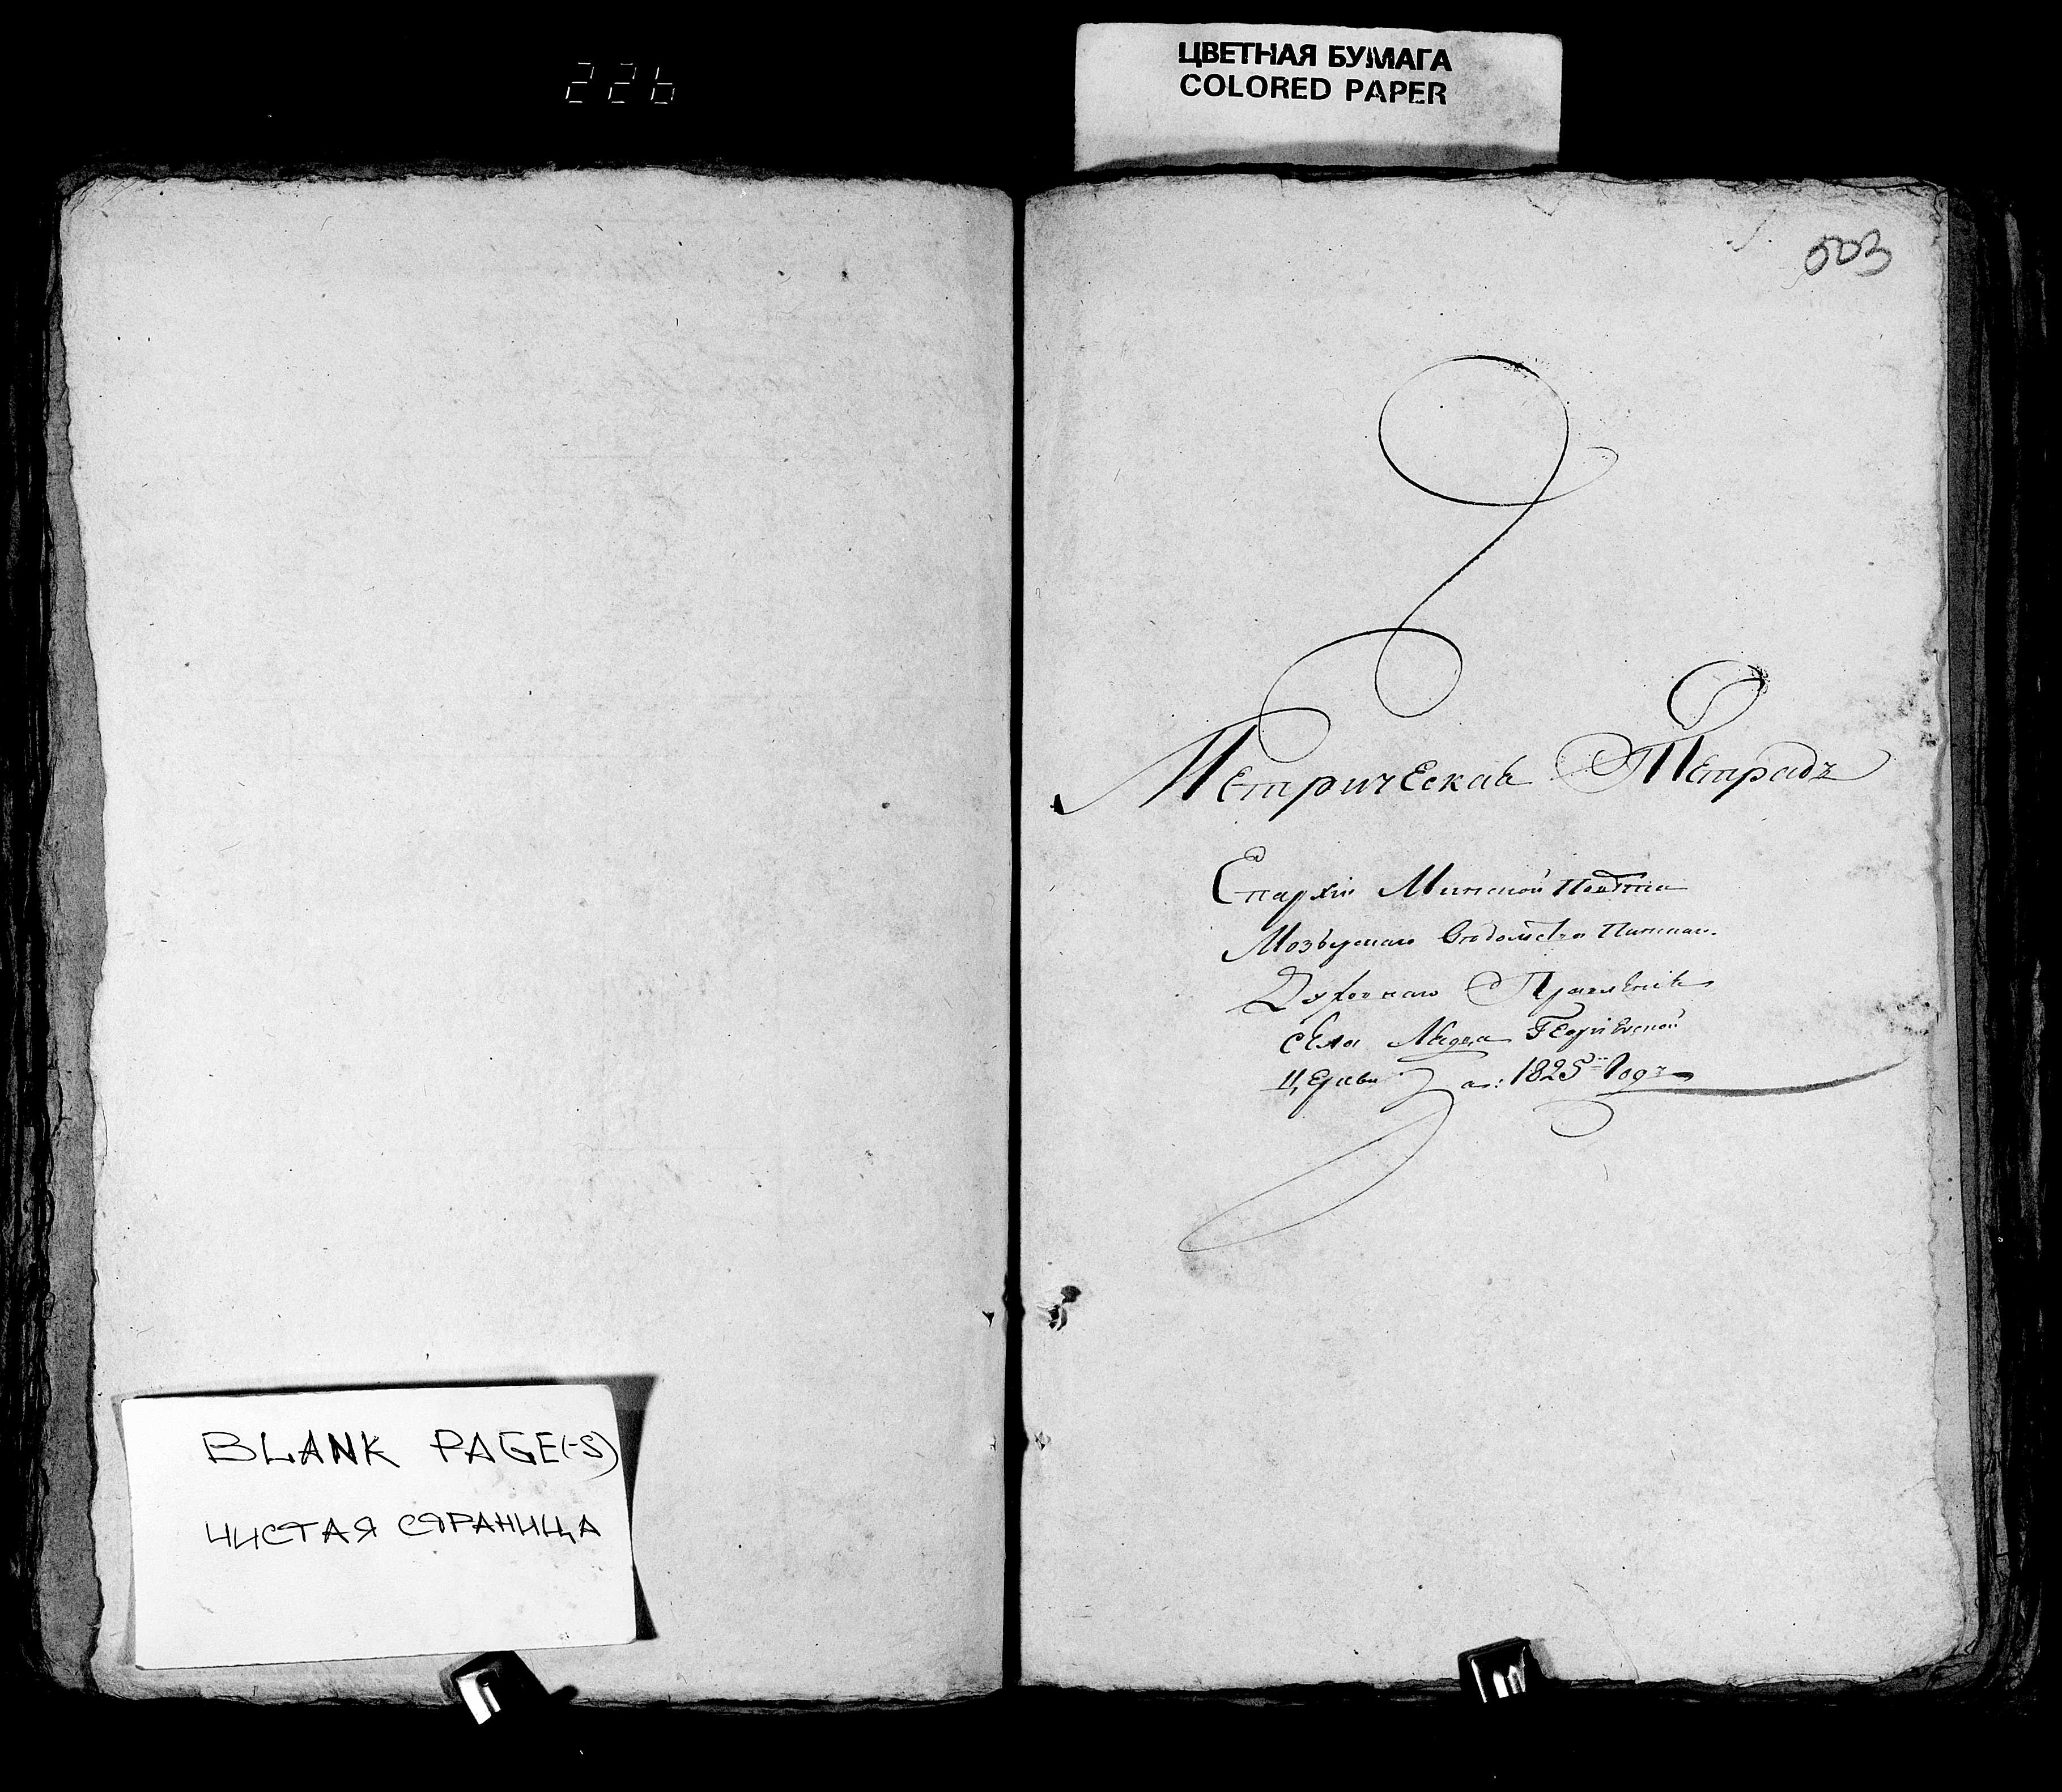 226
ЦВЕТНАЯ БУМАГА
COLORED PAPER
503
Метрическая Тетрадь
Епархіи Минской Повѣта
Мозырскаго Вѣдомства Пинскаг.
Духовнаго Правленія
села Георгіевской
Церкви за: 1825 Годъ
BLANK PAGE(-S)
ЧИСТАЯ СТРАНИЦА